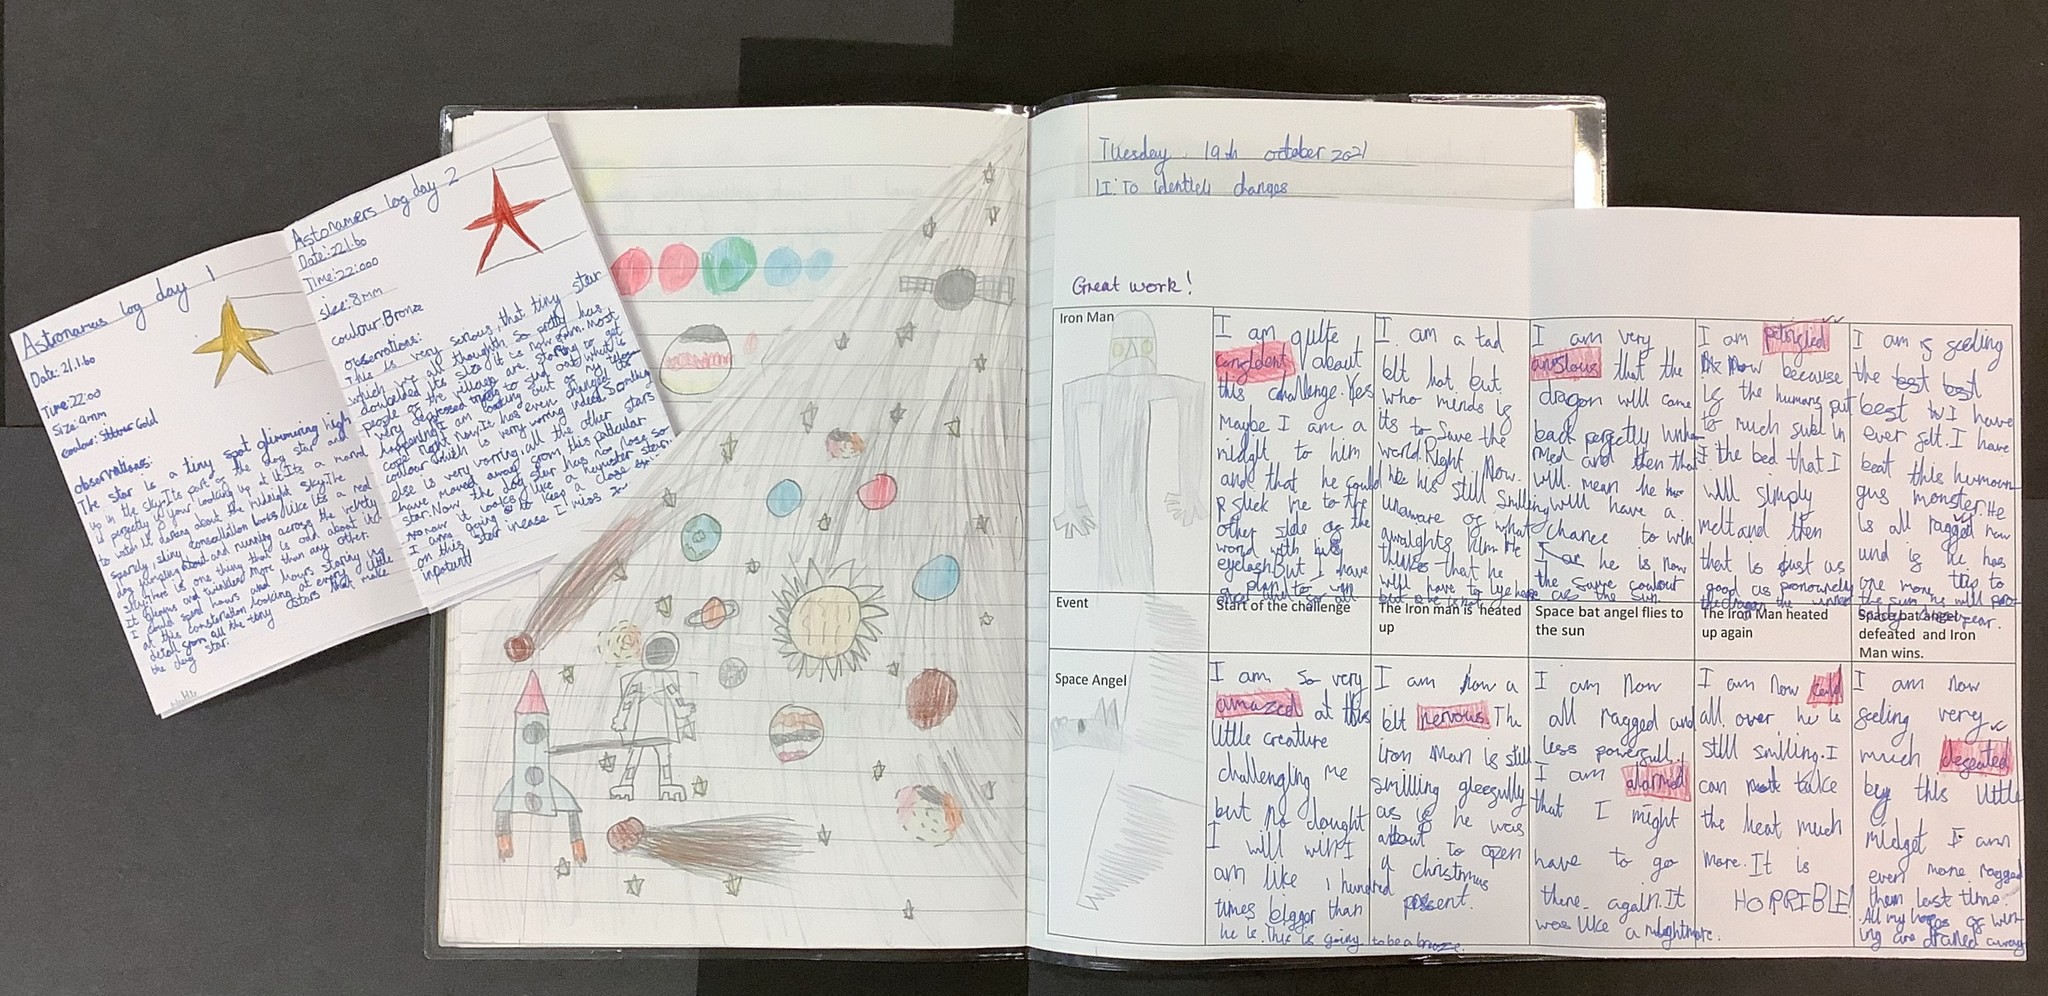 Astronamrus log day 1
Date: 21.1.60
Time:22:00
Size:4mm
coulour: Gold
observations:
The star is a tiny spot glimmering high
up in the sky. Its part of the dog star and
is perfectly if your looking up at it. Its a mand
to watch it dancing about the midnight sky. The
sparcly, shiny constallation looks like its a real
dog jumping about and running across the velvety
sky. There is one thing that is odd about it.
It glows and twinkles more than any other.
I could spend hours and hours staring
at this constersation looking at every little
detail from all the tiny stars that make
the dog star.
Astonamers log day 2
Date:22.1.60
Time:22:000
size:8mm
coulour:Bronze
observations:
This is very serious, that tiny star
which we all thought so pretty has
doubelded its size, it is now 8mm. Most
people of the village are starting to get
very depressed trying to find out what is
happening. I am looking out of my
right now. It has even changed its
coulour which is very worring indeed. Something
else is very worring, all the other stars
have moved away from this paticular
star. Now the dog star has no nose, so
now it looks like a
I am going to keep a close eye
on this star incase I miss
inpotant!
Tuesday 19th october 2021
LI: To identich changes
Great work!
Iron Man
I am quite
confident about
this challenge. Yes
Maybe I am a
midget to him
and that he could
flick me to the
other side of the
world with his
eyelash. But I have
I am a tad
bit hot but
who minds if
its to save the
world. Right Now.
he his still smiling
unaware of what
awaights him. He
thinks that he
will have to
I am very
anxious that the
dragon will come
back perfectly unha-
rmed and then that
will mean he
will have a
chance to win
he is now
the same coulour
as the sun
I am petrified
Now because
if the humans put
to much fuel in
the bed that I
will simply
melt and then
that is just as
good as
I am feeling
the
best I have
ever felt. I have
beat this humoun
gus monster. He
is all ragged now
and if he has
one more trip to
the sun he will
Event
Start of the challenge
The Iron man is heated up
Space bat angel flies to the sun
The Iron Man heated up again
Space bat angel defeated and Iron Man wins.
Space Angel
I am so very
amazed at this
little creature
challenging me
but no dought
I will win. I
am like 1 hundred
times bigger than
he is. This is going to be a breeze.
I am now a
bit nervous. The
iron man is still
smilling gleefully
as if he was
about to open
a christmas
present.
I am now
all ragged and
less powerfull.
I am alarmed
that I might
have to go
there again. It
was like a nightmare.
I am now cold
all over he is
still smiling. I
can not take
the heat much
more. It is
HORRIBLE!
I am now
feeling very
much defeated
by this little
midget I am
even more ragged
them last time.
All my hopes of win-
ing are drained away